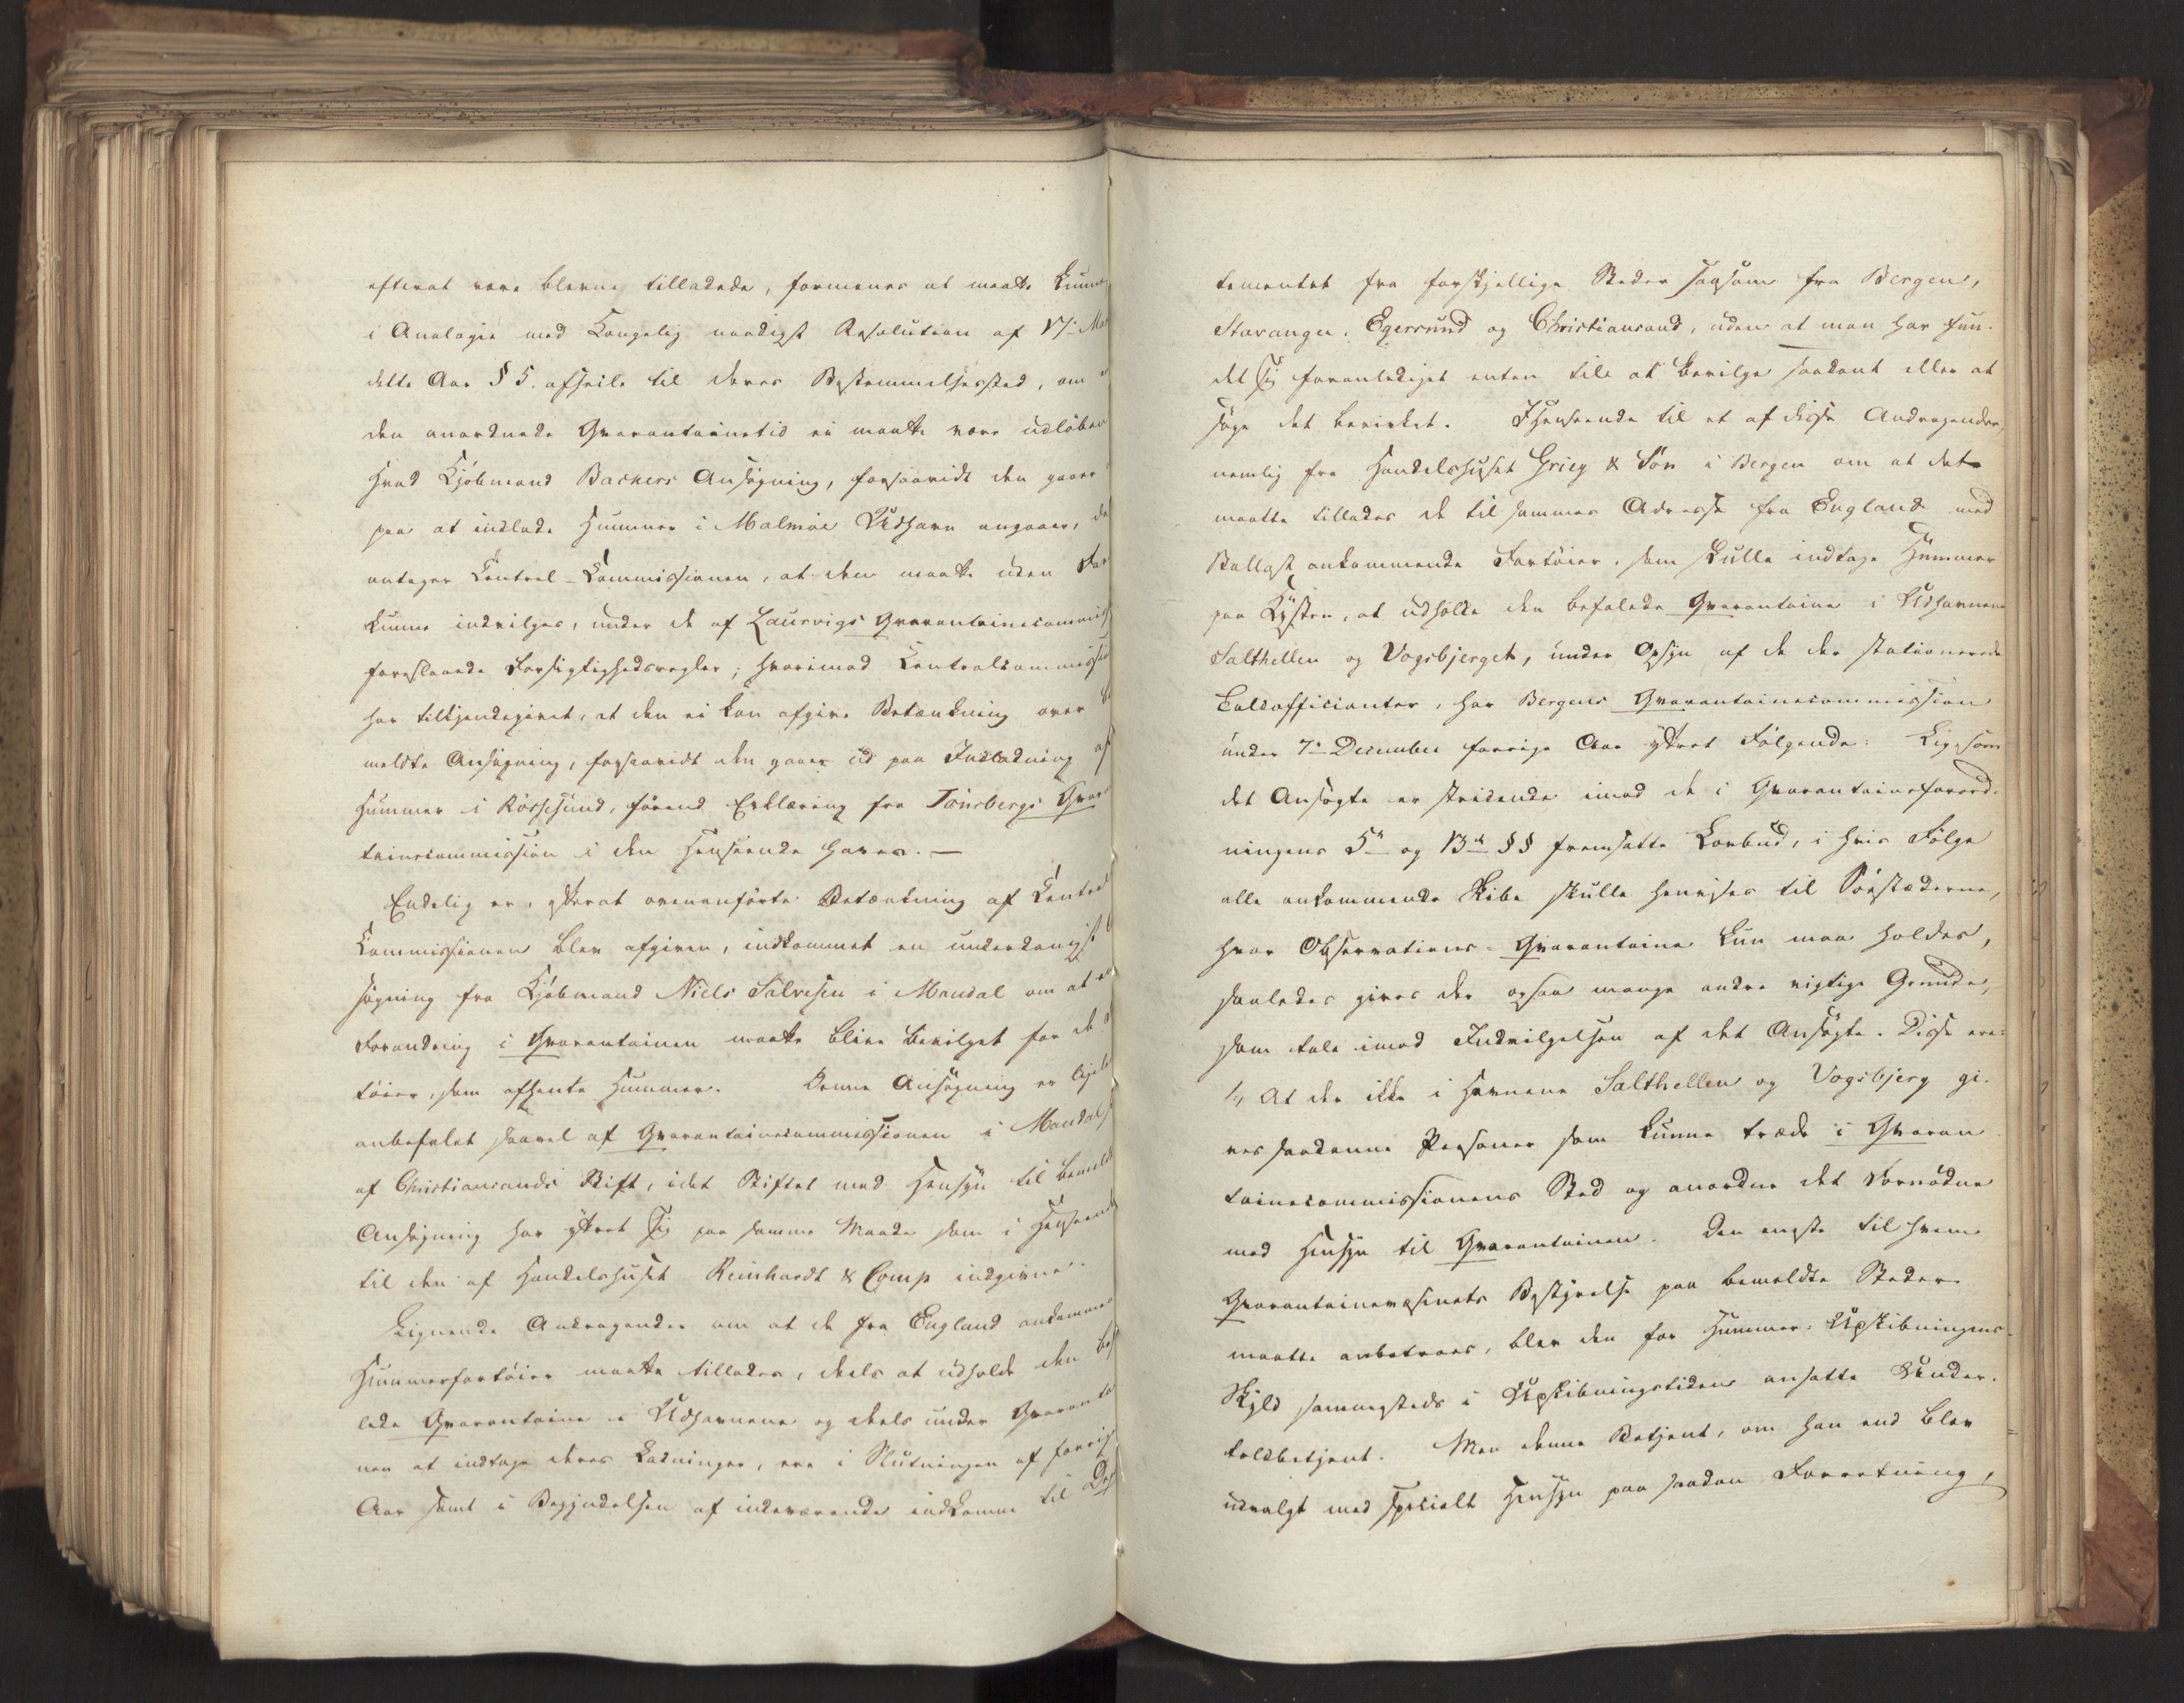 efterat være blevne tilladede, formenes at maatte kunne
i Analogie med Kongelig naadigst Resolution af 17de Mai
dette Aar § 5. afseile til deres Bestemmelsessted, om
den anordnede Qvarantainetid ei maatte være udløben
Hvad Kjøbmand Backers Ansøgning, forsaavidt den gaaer
paa at indlade Hummer i Malmøe Udhavn angaaer, da
antager Central-Commissionen, at den maatte uden Fare
kunne indvilges, under de af Laurvigs Qvarantainecommis
foreslaaede Forsigtighedsregler; hvorimod Centralcommission
har tilkjendegivet, at den ei kan afgive Betænkning over
meldte Ansøgning, forsaavidt den gaaer ud paa Indladning af
Hummer i Røssesund, førend Erklæring fra Tønsbergs Qvaran
tainecommission i den Henseende haves. —
Endelig er, efterat ovenanførte Betænkning af Central
Commissionen blev afgiven, indkommet en underdanigst
søgning fra Kjøbmand Niels Salvesen i Mandal om at en
Forandring i Qvarantainen maatte blive bevilget for de
tøier, som afhente Hummer. Denne Ansøgning er
anbefalet saavel af Qvarantainecommissionen i Mandal
af Christiansands Stift, idet Stiftet med Hensyn til bemeldte
Ansøgning har yttret sig paa samme Maade som i Henseende
til den af Handelshuset Reinhardt & Comp indgivne.
Lignende Andragender om at de fra England ankomme
Hummerfartøier maatte tillades, deels at udholde den bef
lede Qvarantaine i Udhavnene og deels under Qvarantai
nen at indtage deres Ladninger, ere i Slutningen af forrige
Aar samt i Begyndelsen af indeværende indkomne til Dep
tementet fra forskjellige Steder saasom fra Bergen,
Stavanger, Egersund og Christiansand, uden at man har fun-
det sig foranlediget enten till at bevilge saadant eller at
søge det bevirket. Ihenseende til et af disse Andragender,
nemlig fra Handelshuset Grieg & Søn i Bergen om at det
maatte tillades de til sammes Adresse fra England med
Ballast ankommende Fartøier, som skulle indtage Hummer
paa Kysten, at udholde den befalede Qvarantaine i Udhavnene
Salthellen og Vogsbjerget, under Opsyn af de der stationerede
Toldofficianter, har Bergens Qvarantainecommission
under 7de December forrige Aar yttret Følgende: Ligesom
det Ansøgte er stridende imod de i Qvarantaineforord-
ningens 5te og 13de §§ fremsatte Lovbud, i hvis Følge
alle ankommende Skibe skulle henvises til Søestæderne,
hvor Observations-Qvarantaine kun maa holdes,
saaledes gives der ogsaa mange andre vigtige Grunde,
som tale imod Indvilgelsen af det Ansøgte. Disse ere:
1., At der ikke i Havnene Salthellen og Vogsbjerg gi-
ves saadanne Personer som kunne træde i Qvaran
tainecommissionens Sted og anordne det Fornødne
med Hensyn til Qvarantainen. Den eneste til hvem
Qvarantainevæsenets Bestyrelse paa bemeldte Steder
maatte anbetroes, blev den for Hummer-Udskibningens
Skyld sammesteds i Udskibningstiden ansatte Under-
toldbetjent. Men denne Betjent, om han end blev
udvalgt med specielt Hensyn paa saadan Forretning,